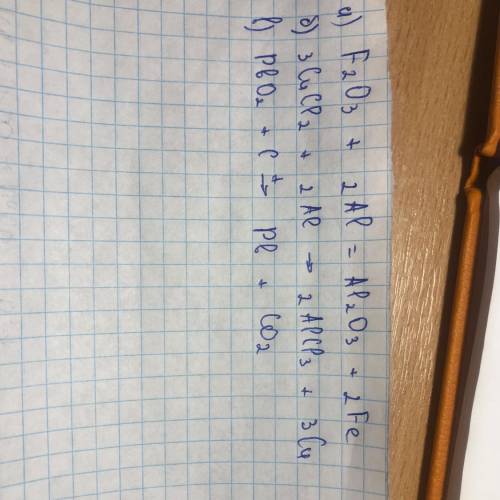 а) F₂O₃ + 2Al = Al₂O₃ + 2Fe
б) 3CuCl₂ + 2Al → 2AlCl₃ + 3Cu
в) PbO₂ + C →ᵗ Pb + CO₂